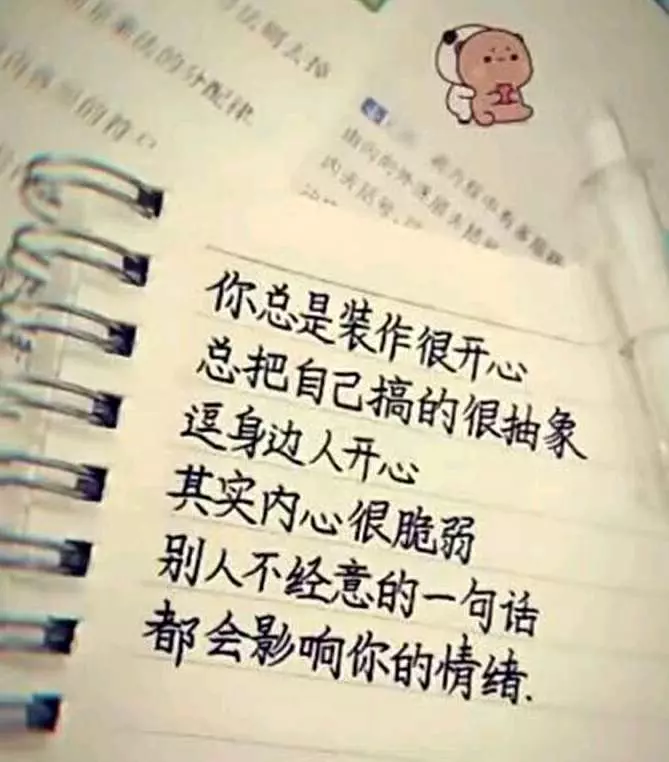 法则去掉
乘法的分配律.
你总是装作很开心
总把自己搞的很抽象
逗身边人开心
其实内心很脆弱
别人不经意的一句话
都会影响你的情绪.